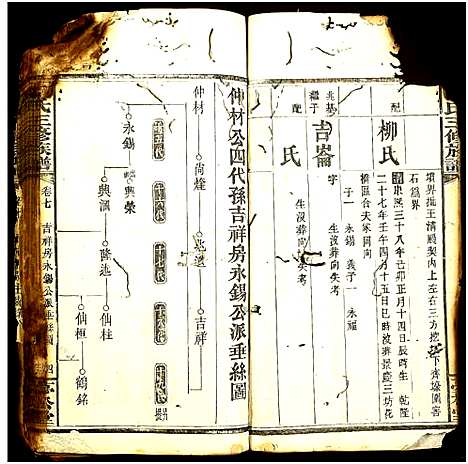 氏三修族譜
墳界批王清殿契內上左右三方挖
下齊壕圍窖
石爲界
配
柳氏
清康熙三十八年己卯正月十四日辰時生 乾隆
二十七年壬午四月十五日巳時沒葬景三坊花
橋匯合天家同向
子一 永錫 義子一 永福
兆基
繼子
吉崙
字
生沒葬向失考
配
氏
生沒葬向失考
仲材公四代孫吉祥房永錫公派垂絲圖
仲材
尚煃
吉祥
十五代
十六代
十七代
十八代
十九代
永錫
興榮
興渢
隆進
仙柱
仙桓
鶴銘
氏三修族譜
卷七
吉祥房永錫公派垂絲圖
四